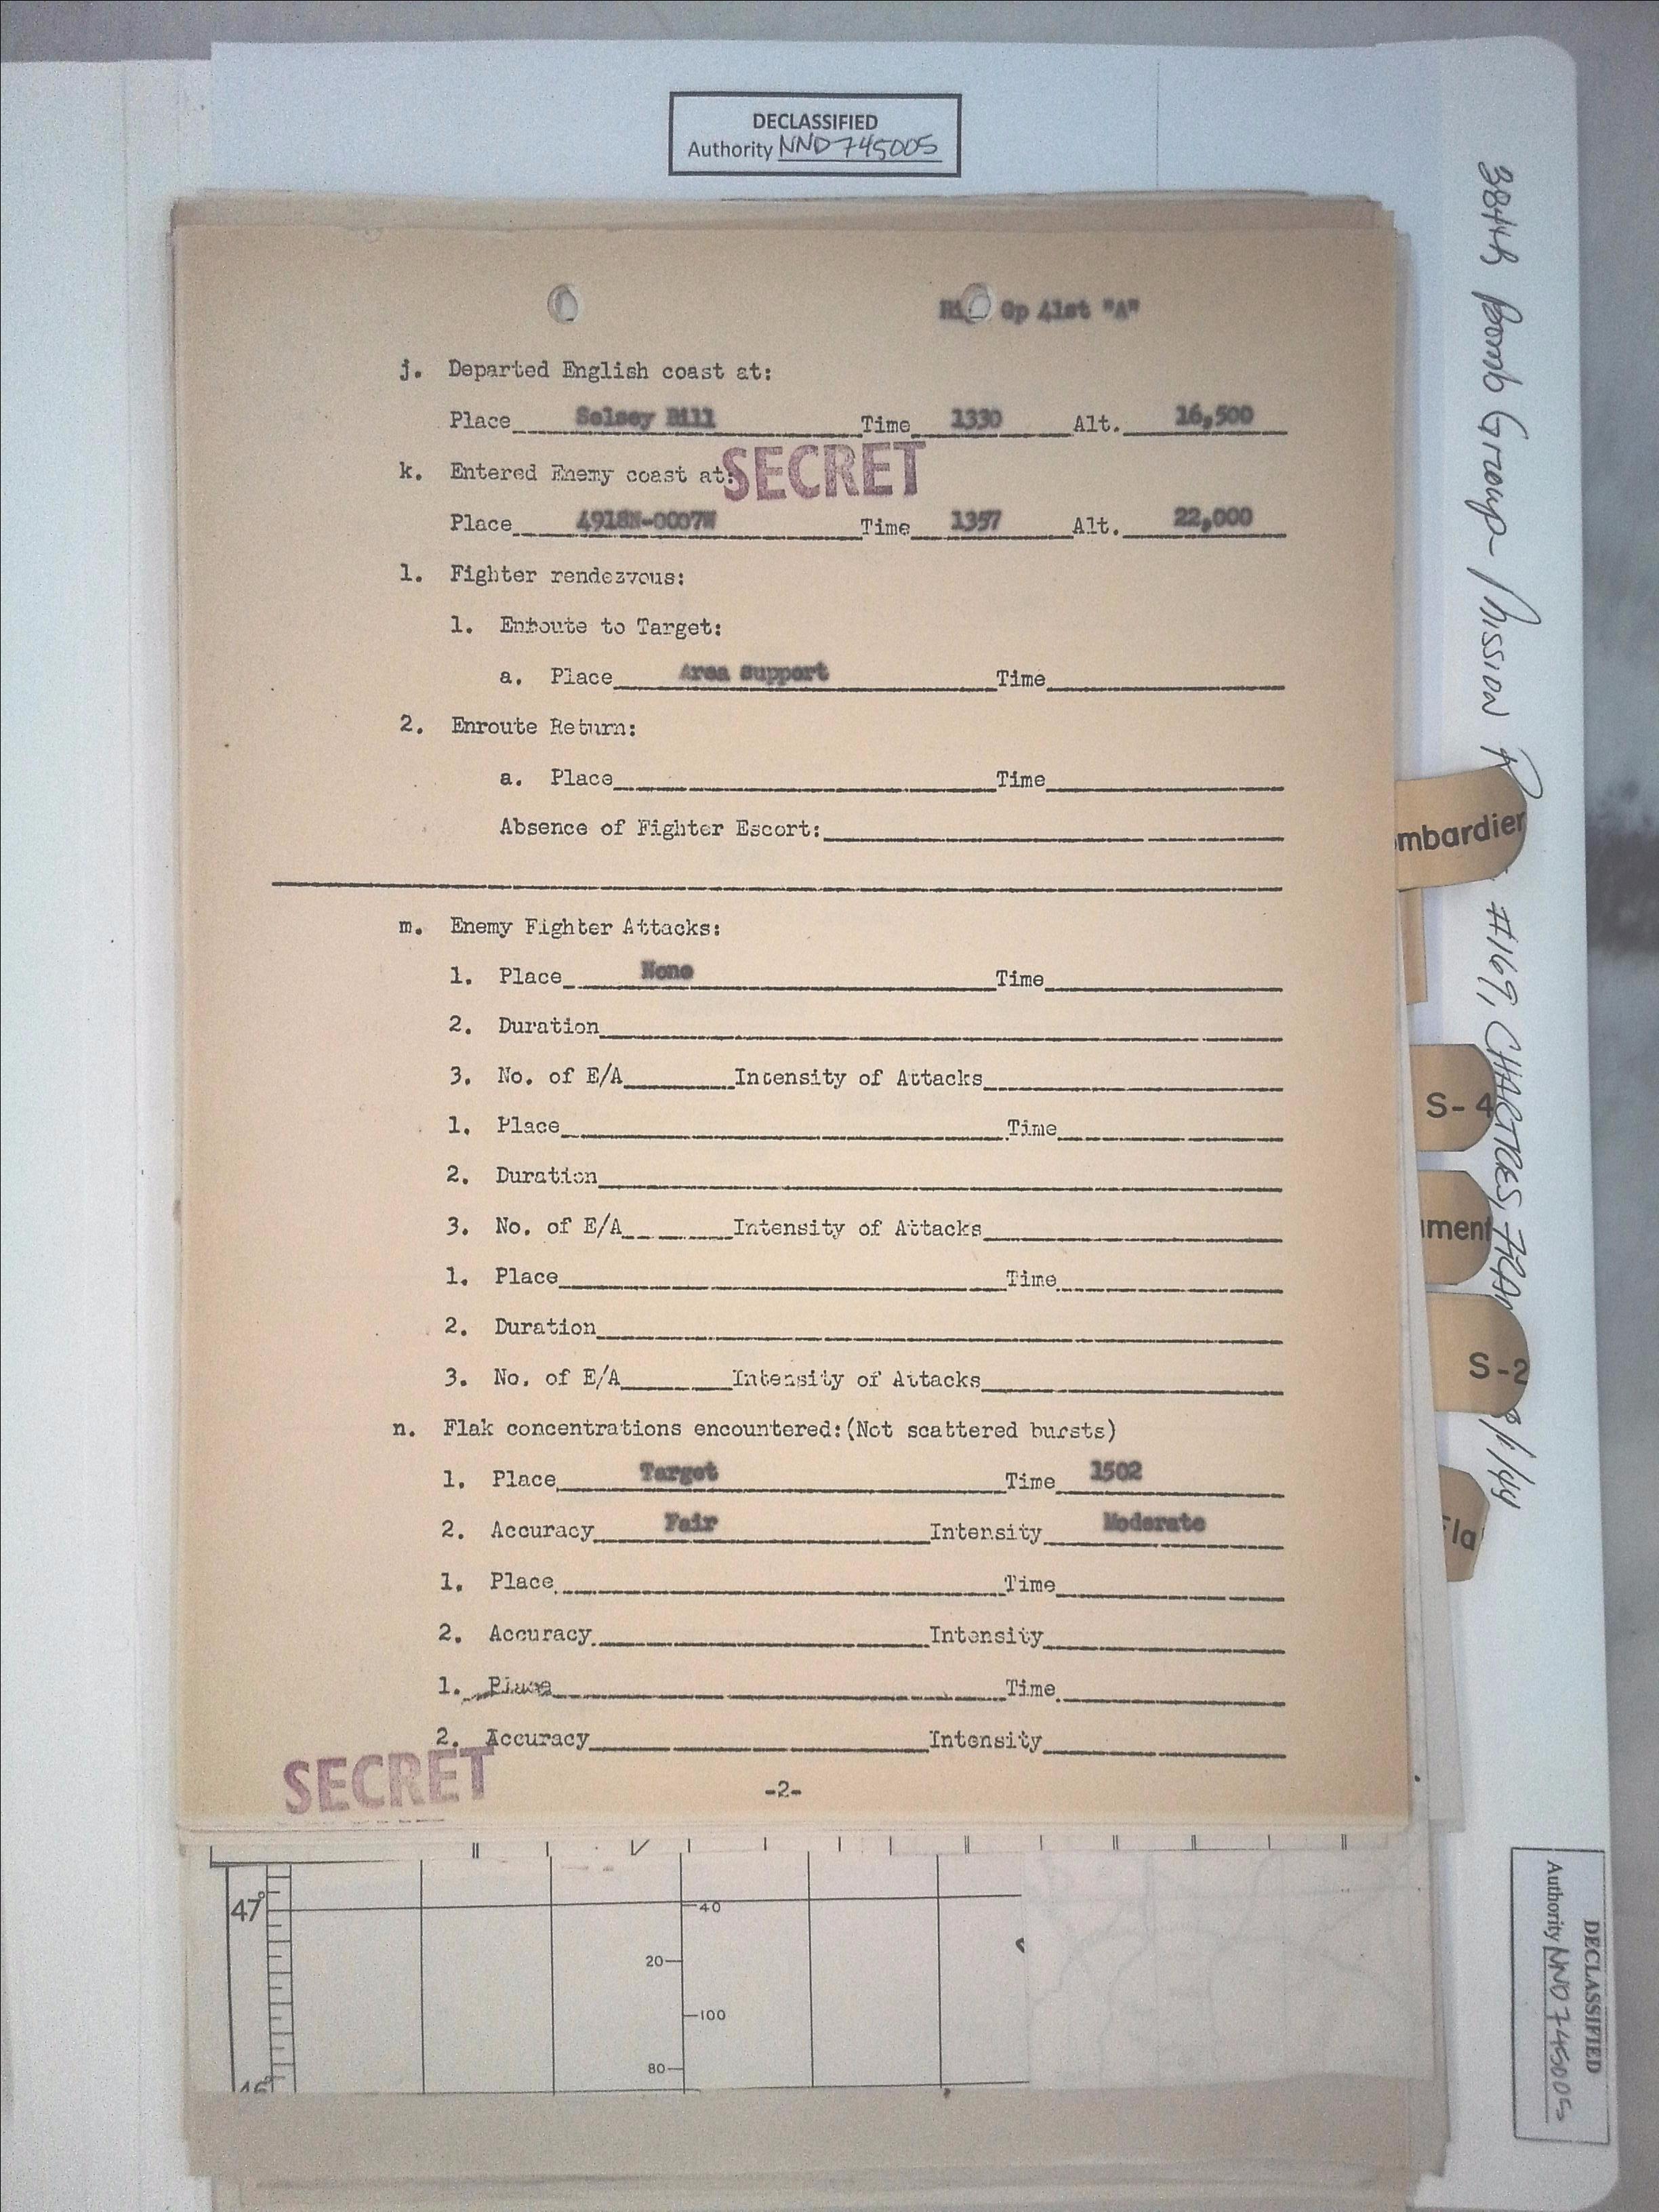 DECLASSIFIED
Authority NND 745005
Gp 41st "A"
j. Departed English coast at:
Place Selsey Bill Time 1330 Alt. 16,500
SECRET
k. Entered Enemy coast at:
Place 4918N-0007W Time 1357 Alt. 22,000
l. Fighter rendezvous:
1. Enroute to Target:
a. Place Area support Time
2. Enroute Return:
a. Place Time
Absence of Fighter Escort:
m. Enemy Fighter Attacks:
1. Place None Time
2. Duration
3. No. of E/A Intensity of Attacks
1. Place Time
2. Duration
3. No. of E/A Intensity of Attacks
1. Place Time
2. Duration
3. No. of E/A Intensity of Attacks
n. Flak concentrations encountered:(Not scattered bursts)
1. Place Target Time 1502
2. Accuracy Fair Intensity Moderate
1. Place Time
2. Accuracy Intensity
1. Place Time
2. Accuracy Intensity
SECRET
-2-
47°
40
20
100
80
46°
384th Bomb Group- Mission
#169, CHARTRES,
mbardier
S-4
ment
S-2
Fla
DECLASSIFIED
Authority NND 745005